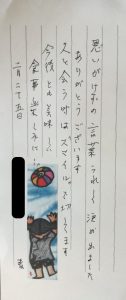 思いがけずの言葉うれしく決めました
ありがとうございます
人と会う時はスマイルで切します
今後とも美味しい
食事楽しみに
二月二十五日